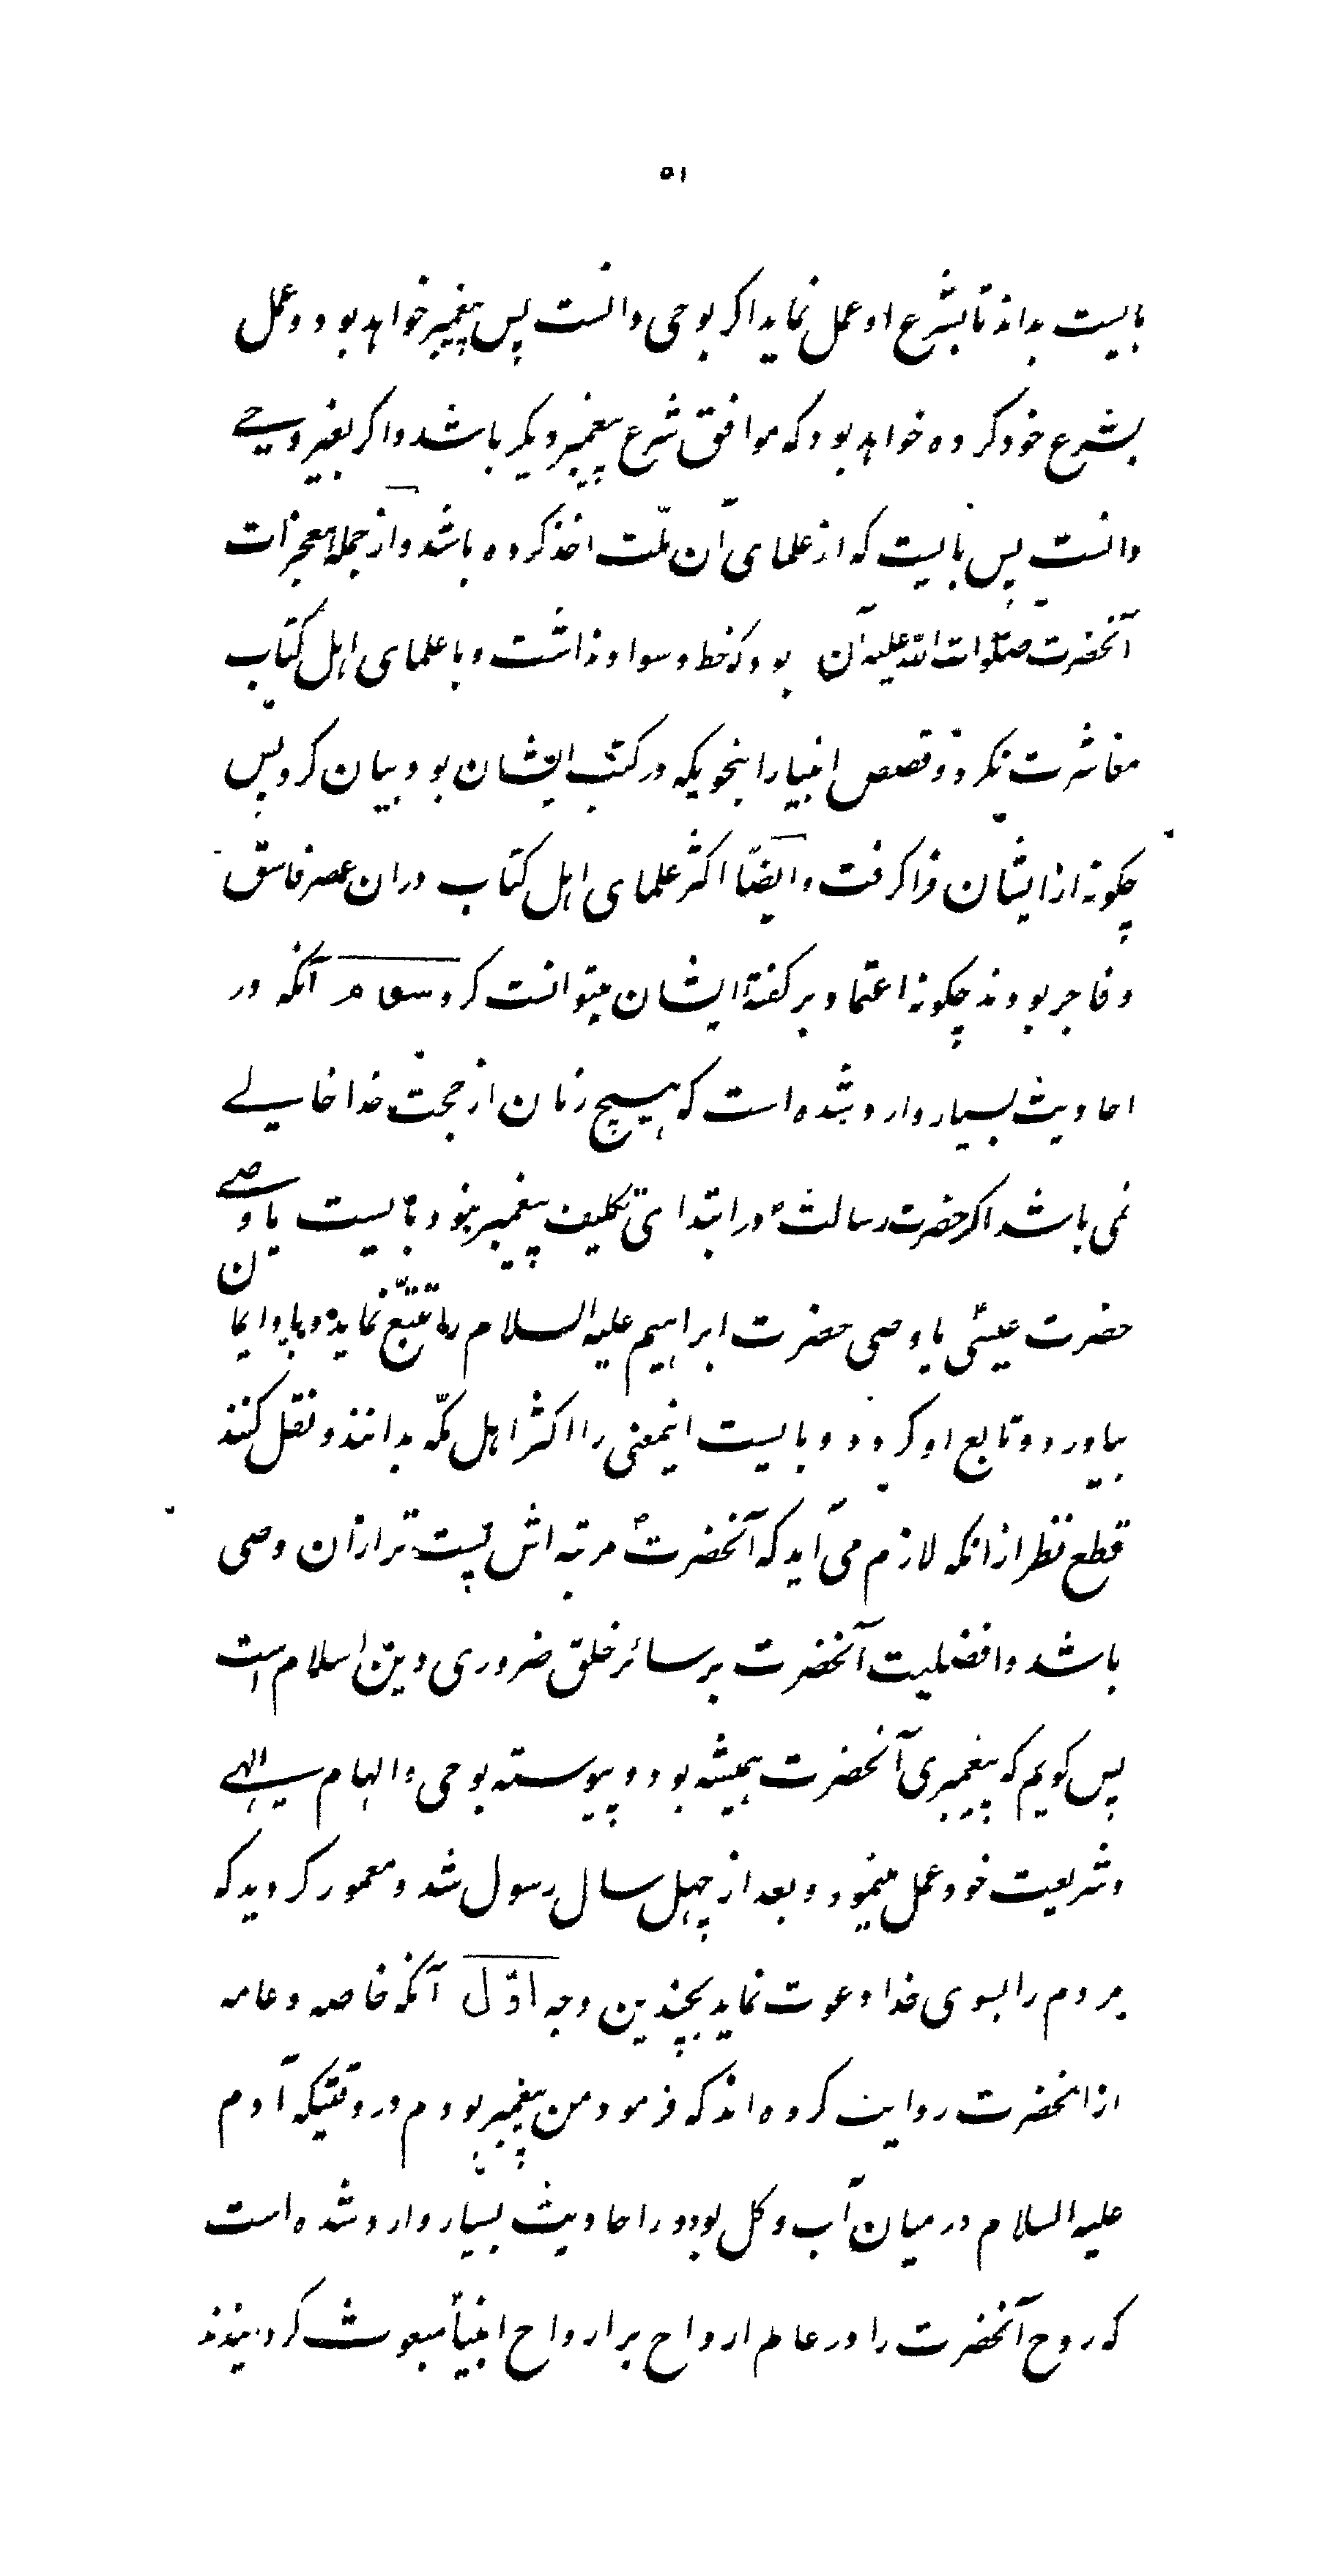 ۵۱
بایست بداند تا بشرع او عمل نماید اکر بوحی دانست پس پیغمبر خواهد بود و عمل
بشرع خود کرده خواهد بود که موافق شرع پیغمبر دیکر باشد و اکر بغیر وحے
دانست پس بایست که از علمای آن ملّت اخذ کرده باشد و از جمله معجزات
آنحضرت صلوات الله علیه آن بود که خط و سواد نداشت و با علمای اهل کتاب
معاشرت نکرد و قصص انبیا را بنحویکه در کتب ایشان بود بیان کرد پس
چکونه از ایشان فرا کرفت و ایضًا اکثر علمای اهل کتاب دران عصر فاسق
و فاجر بودند چکونه اعتماد بر کفتهٔ ایشان میتوانست کرد سوم آنکه در
احادیث بسیار وارد شده است که هیچ زمان از حجت خدا خالے
نمی باشد اکر حضرت رسالتؐ در ابتدای تکلیف پیغمبر نبود بایست یا وصے
حضرت عیسیٰ یا وصی حضرت ابراهیم علیه السلام را تتبّع نماید و باو ایمان
بیاورد و تابع او کردد و بایست اینمعنی را اکثر اهل مکّه بدانند و نقل کنند
قطع نظر ازانکه لازم می آید که آنحضرتؐ مرتبه اش پست تر ازان وصی
باشد و افضلیت آنحضرت بر سائر خلق ضروری دین اسلام است
پس کویم که پیغمبری آنحضرت همیشه بود و پیوسته بوحی و الهام الهے
و شریعت خود عمل مینمود و بعد از چهل سال رسول شد و معمور کردید که
مردم را بسوی خدا دعوت نماید بچندین وجه اوّل آنکه خاصه و عامه
از انحضرت روایت کرده اند که فرمود من پیغمبر بودم در وقتیکه آدم
علیه السلام در میان آب و کل بود و در احادیث بسیار وارد شده است
که روح آنحضرت را در عالم ارواح بر ارواح انبیاء مبعوث کردنیدند